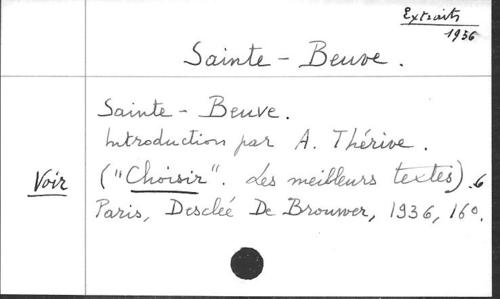 Extraits
1936
Sainte - Beuve.
Sainte - Beuve.
Introduction par A. Thérive.
Voir ("Choisir". Les meilleurs textes).6
Paris, Desclée De Brouwer, 1936, 16º.